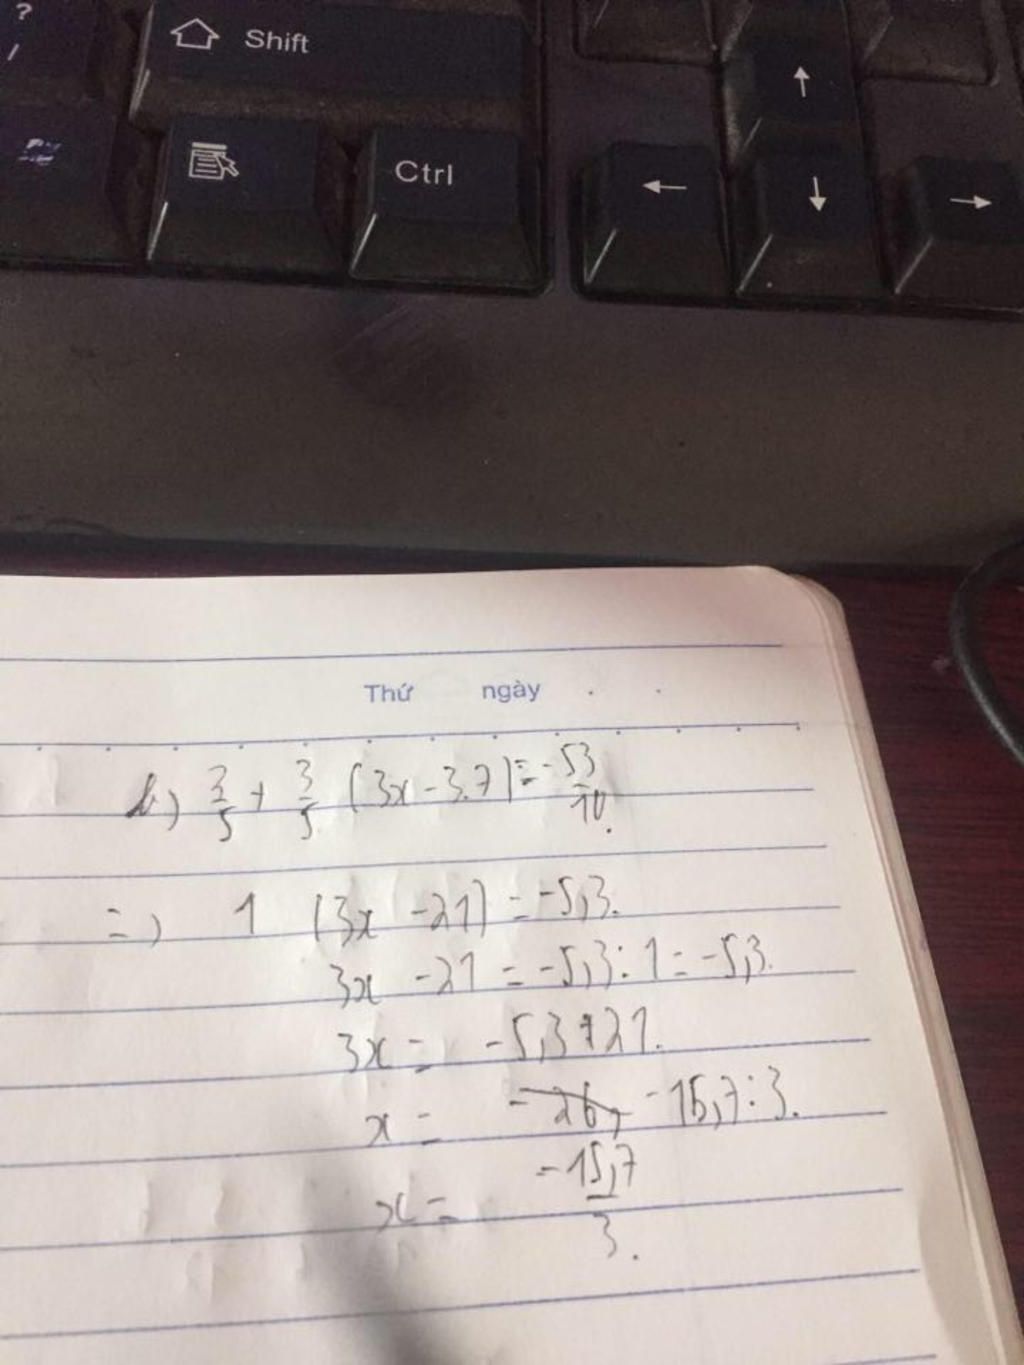 ?
/
Shift
Ctrl
↑
← ↓ →
Thứ ngày
b) 2/5 + 3/5 (3x - 3.7) = -53/10.
=) 1 (3x - 21) = -5,3.
3x - 21 = -5,3 : 1 = -5,3.
3x = -5,3 + 21.
x = -15,7 : 3.
x = -15,7/3.